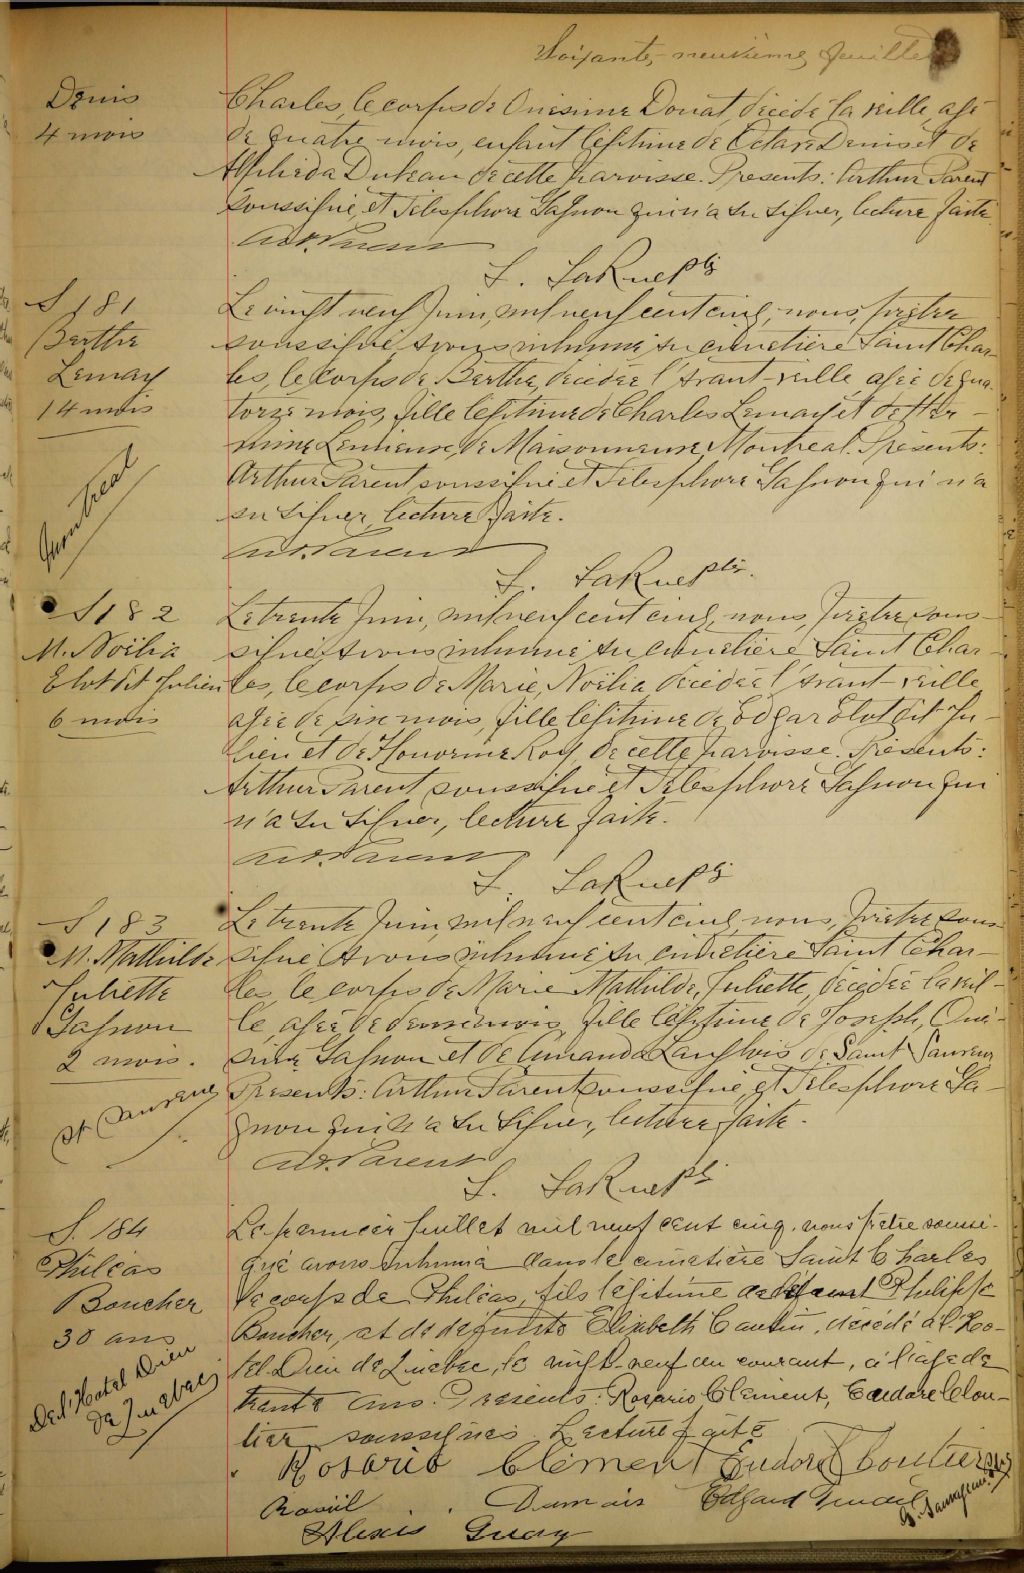 Soixante-neuvième feuillet
Denis
4 mois
Charles, le corps de Onésime Donat, décédé la veille, agé
de quatre mois, enfant légitime de Octave Denis et de
Alphéda Dubeau de cette paroisse. Présents: Arthur Parent
soussigné, et Télesphore Gagnon qui n'a su signer, lecture faite.
Art. Parent
L. LaRue Ptr
S 181
Berthe
Lemay
14 mois
Montreal
Le vingt neuf Juin, mil neuf cent cinq, nous, prêtre
soussigné, avons inhumé au cimetière Saint Char-
les, le corps de Berthe, décédée l'avant-veille agée de qua-
torze mois, fille légitime de Charles Lemay et de Her-
mine Lemieux, de Maisonneuve, Montreal. Présents:
Arthur Parent soussigné et Télesphore Gagnon qui n'a
su signer, lecture faite.
Art. Parent
L. LaRue ptr.
S 182
M. Noëlia
Elot dit Julien
6 mois
Le trente Juin, mil neuf cent cinq, nous, prêtre sous-
signé, avons inhumé, au cimetière Saint Char-
les, le corps de Marie, Noëlia, décédée l'avant-veille
agée de six mois, fille légitime de Edgar Elot dit Ju-
lien et de Honorine Roy, de cette paroisse. Présents:
Arthur Parent soussigné et Télesphore Gagnon qui
n'a su signer, lecture faite.
Art. Parent
L. LaRue Ptr
S 183
M. Mathilde
Juliette
Gagnon
2 mois.
St Sauveur
Le trente Juin, mil neuf cent cinq, nous, prêtre sous-
signé, avons inhumé, au cimetière Saint Char-
les, le corps de Marie Mathilde, Juliette, décédée la veil-
le, agée de deux mois, fille légitime, de Joseph, Oné-
sime Gagnon et de Amanda Langlois de Saint Sauveur
Présents: Arthur Parent soussigné, et Télesphore Ga-
gnon qui n'a su signer, lecture faite.
Art. Parent
L. LaRue Ptr
S. 184
Philéas
Boucher
30 ans
De l'Hotel Dieu
de Quebec
Le premier Juillet mil neuf cent cinq, nous prêtre soussi-
gné avons inhumé dans le cimetière Saint Charles
le corps de Philéas, fils légitime de défunt Philippe
Boucher, et de défunte Elizabeth Cantin, décédé à l'Ho-
tel-Dieu de Québec, le vingt-neuf du courant, à l'age de
trente ans. Présents: Rosario Clément, Eudore Clou-
tier soussignés. Lecture faite
Rosario Clément Eudore Cloutier
Raoúl Dumais Edgard
Alexis Guay